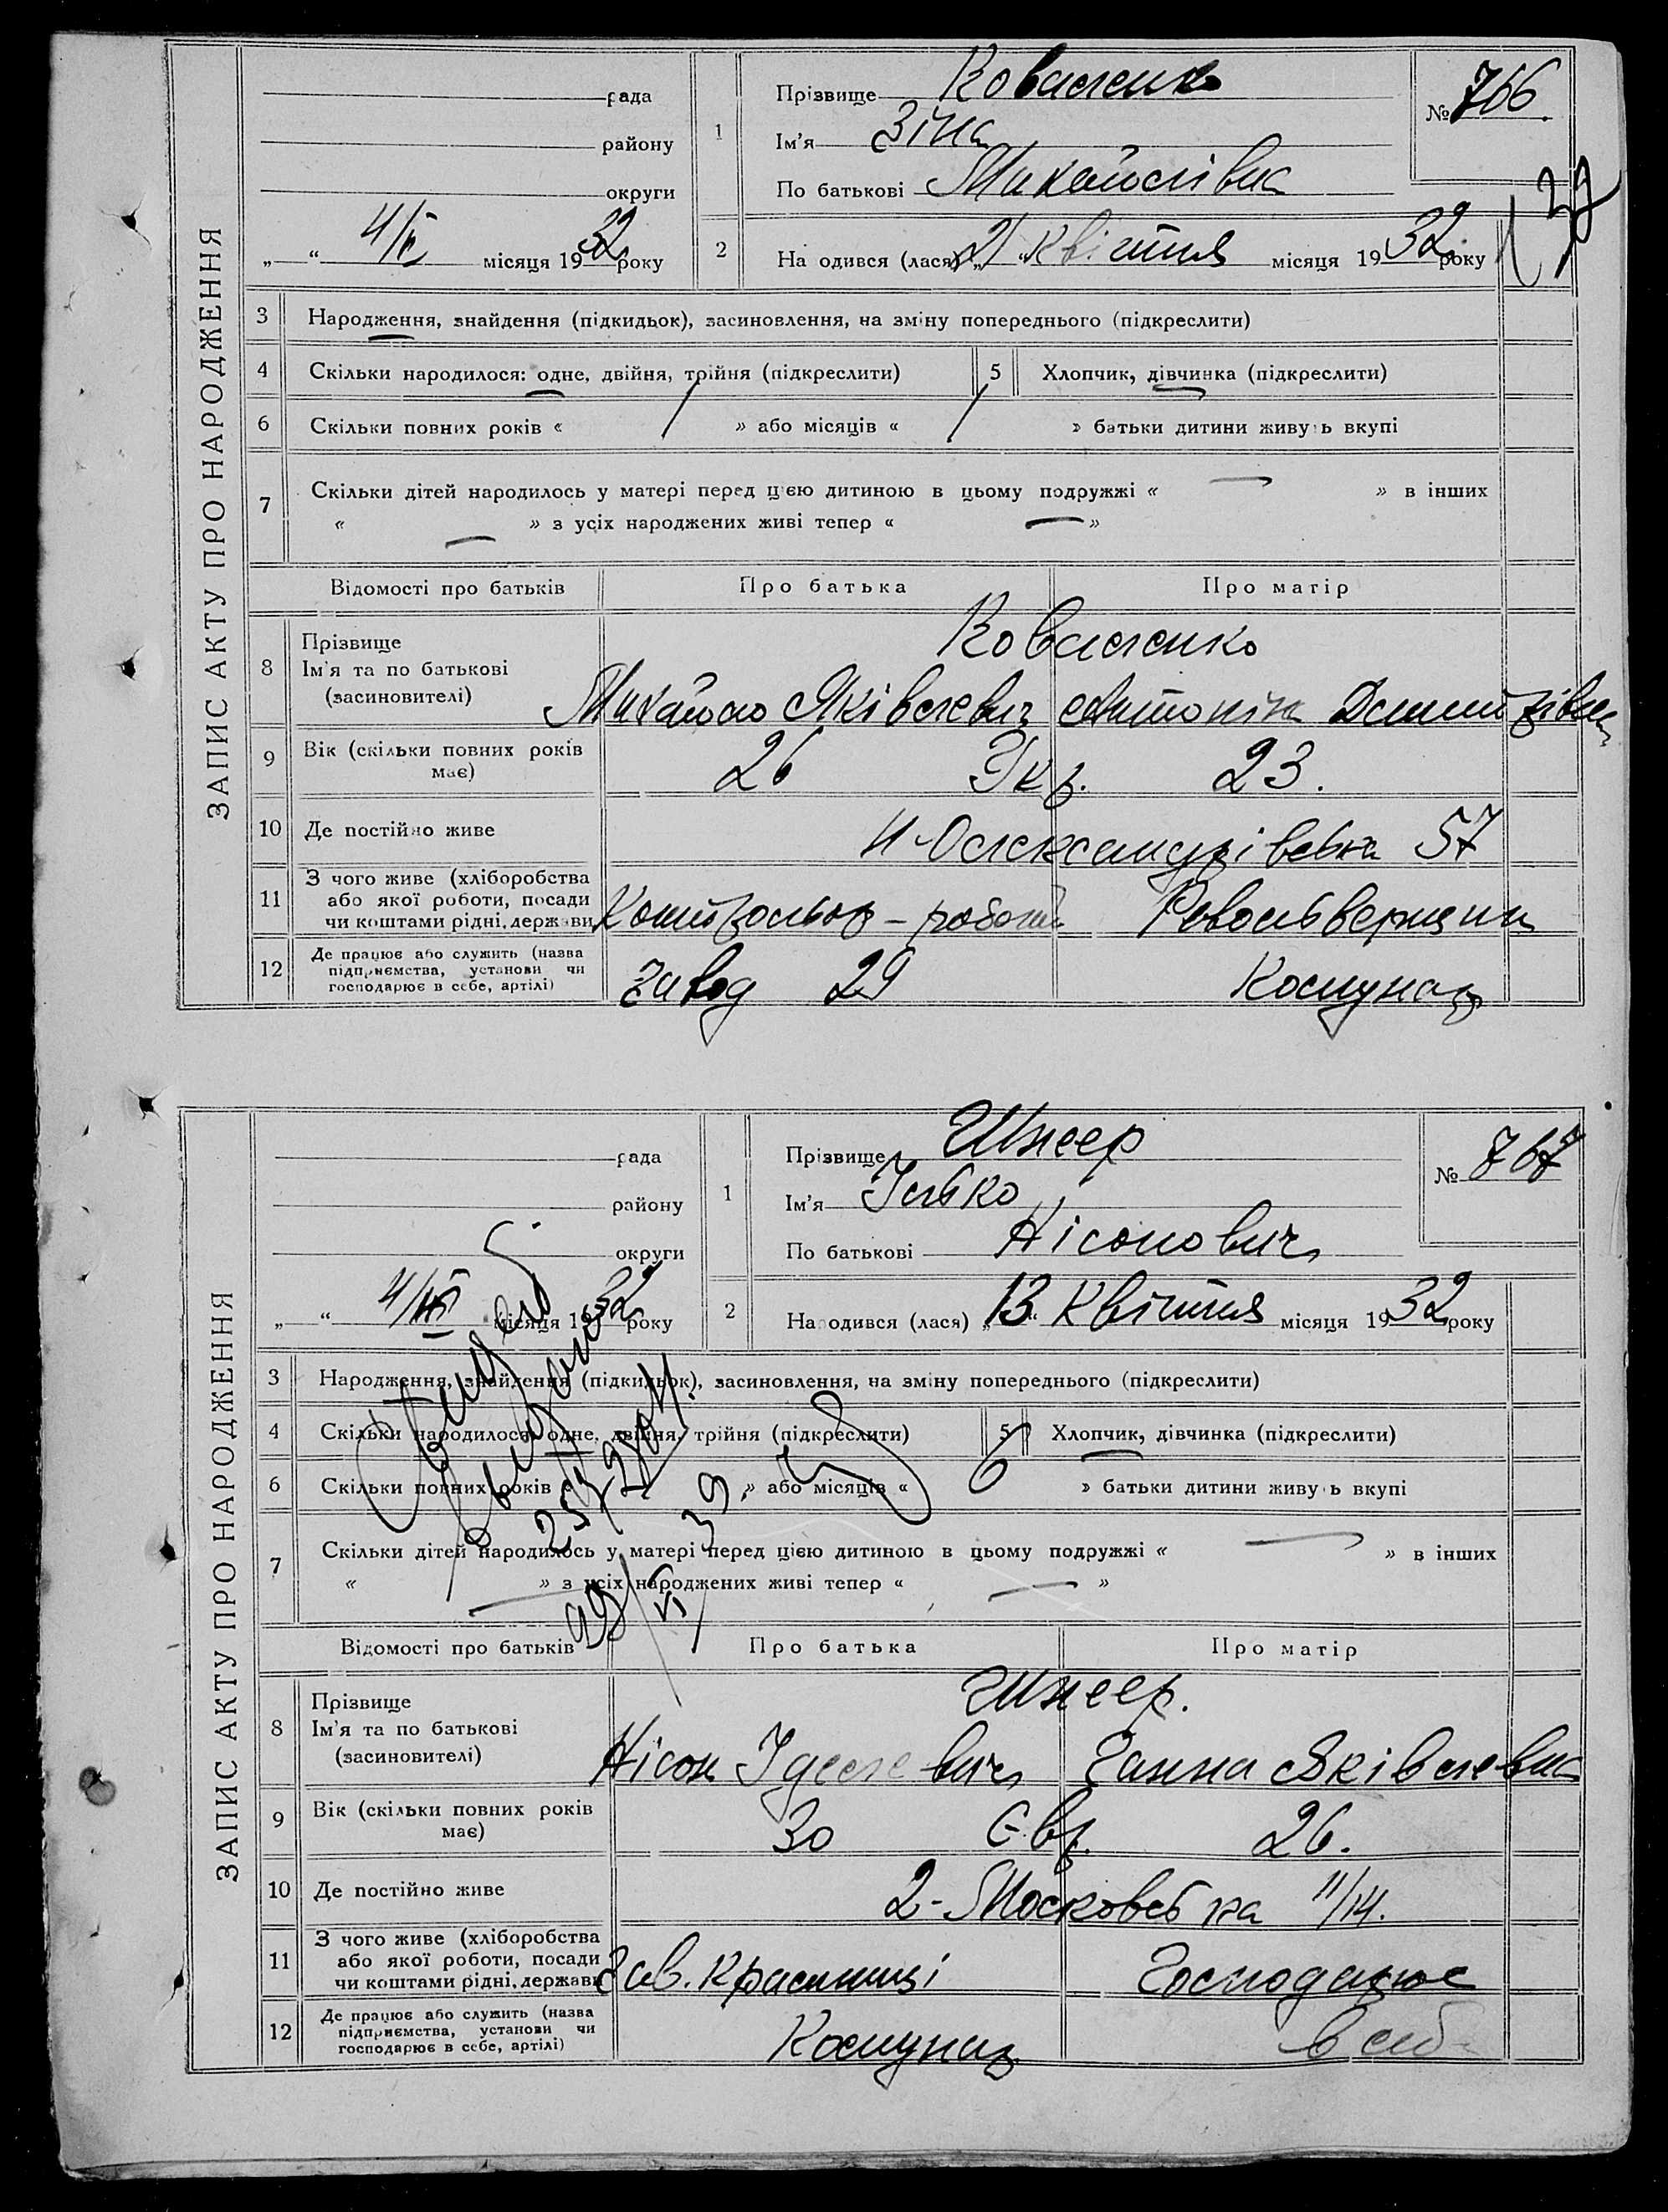 ЗАПИС АКТУ ПРО НАРОДЖЕННЯ
рада
району
округи
„ “ 4/V місяця 1932 року
1
Прізвище Коваленко
Ім'я Зіна
По батькові Михайлівна
№ 766.
2
На одився (лася) „21“ квітня місяця 1932 року
3 Народження, знайдення (підкидьок), засиновлення, на зміну попереднього (підкреслити)
4 Скільки народилося: одне, двійня, трійня (підкреслити)
5 Хлопчик, дівчинка (підкреслити)
6 Скільки повних років « / » або місяців « / » батьки дитини живуть вкупі
7 Скільки дітей народилось у матері перед цією дитиною в цьому подружжі « — » в інших
« — » з усіх народжених живі тепер « — »
Відомості про батьків Про батька Про матір
8 Прізвище
Ім'я та по батькові
(засиновителі)
Коваленко
Михайло Яківлевич Антоніна Дмитрівна
9 Вік (скільки повних років має) 26 Укр. 23.
10 Де постійно живе Н-Олександрівська 57
11 З чого живе (хліборобства
або якої роботи, посади
чи коштами рідні, держави
Контрольор – робоч Револьверщиця
12 Де працює або служить (назва
підприємства, установи чи
господарює в себе, артілі)
завод 29 Комунар
ЗАПИС АКТУ ПРО НАРОДЖЕННЯ
рада
району
округи
„ “ 4/ місяця 1932 року
1
Прізвище Шнеер
Ім'я Ілько
По батькові Нісонович
№ 767
2
На одився (лася) „13“ Квітня місяця 1932 року
3 Народження, знайдення (підкидьок), засиновлення, на зміну попереднього (підкреслити)
4 Скільки народилося: одне, двійня, трійня (підкреслити)
5 Хлопчик, дівчинка (підкреслити)
6 Скільки повних років « » або місяців « » батьки дитини живуть вкупі
7 Скільки дітей народилось у матері перед цією дитиною в цьому подружжі « — » в інших
« — » з усіх народжених живі тепер « — »
Відомості про батьків Про батька Про матір
8 Прізвище
Ім'я та по батькові
(засиновителі)
Шнеер.
Нісон Ганна Яківлевна
9 Вік (скільки повних років має) 30 Євр. 26.
10 Де постійно живе 2-Московська 11/14.
11 З чого живе (хліборобства
або якої роботи, посади
чи коштами рідні, держави
Зав. крамниці Господарює
12 Де працює або служить (назва
підприємства, установи чи
господарює в себе, артілі)
Комунар в себ